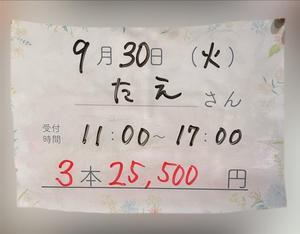 9月30日（火）
たえさん
受付時間 11:00～17:00
3本25,500円